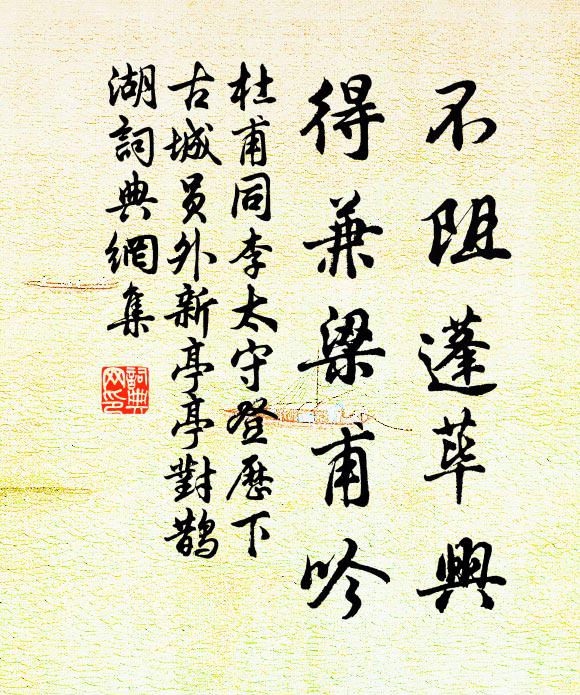 不阻蓬荜興
得兼梁甫吟
杜甫同李太守登歷下
古城员外新亭亭對鵲
湖詞典網集
詞典
网印